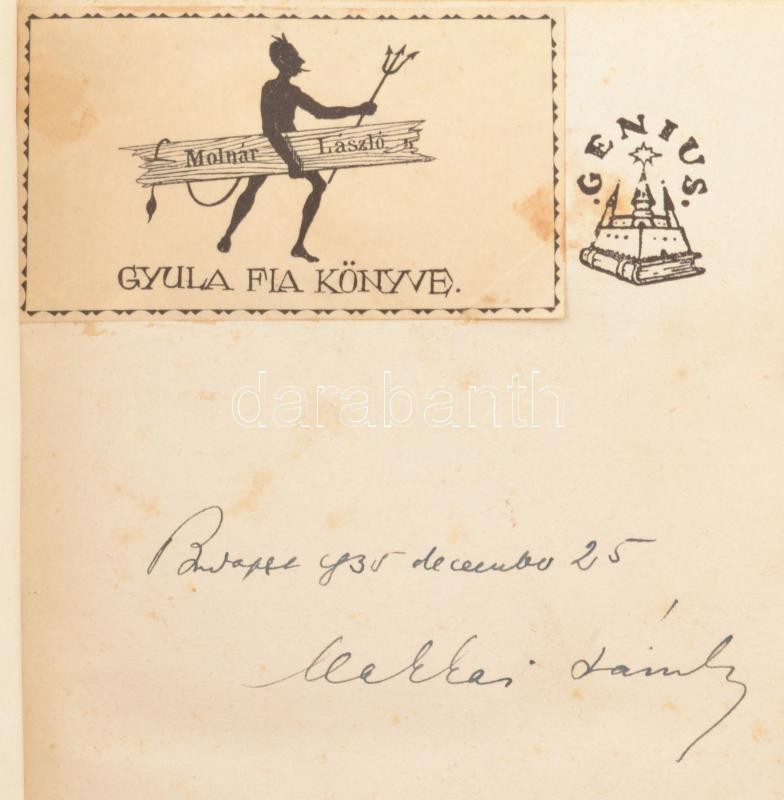 Molnár László
GYULA FIA KÖNYVE.
.GENIUS.
darabanth
Budapest 935 december 25
Makkai Sándor